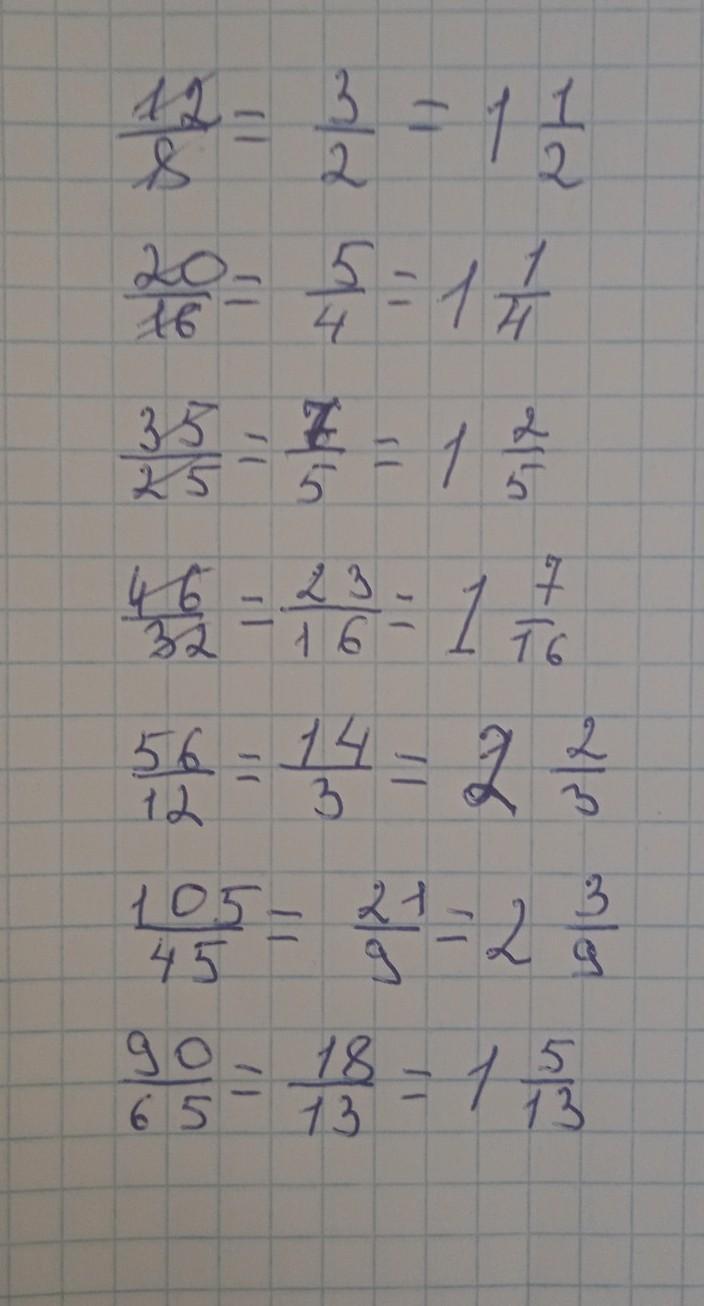 12/8 = 3/2 = 1 1/2
20/16 = 5/4 = 1 1/4
35/25 = 7/5 = 1 2/5
46/32 = 23/16 = 1 7/16
56/12 = 14/3 = 2 2/3
105/45 = 21/9 = 2 3/9
90/65 = 18/13 = 1 5/13